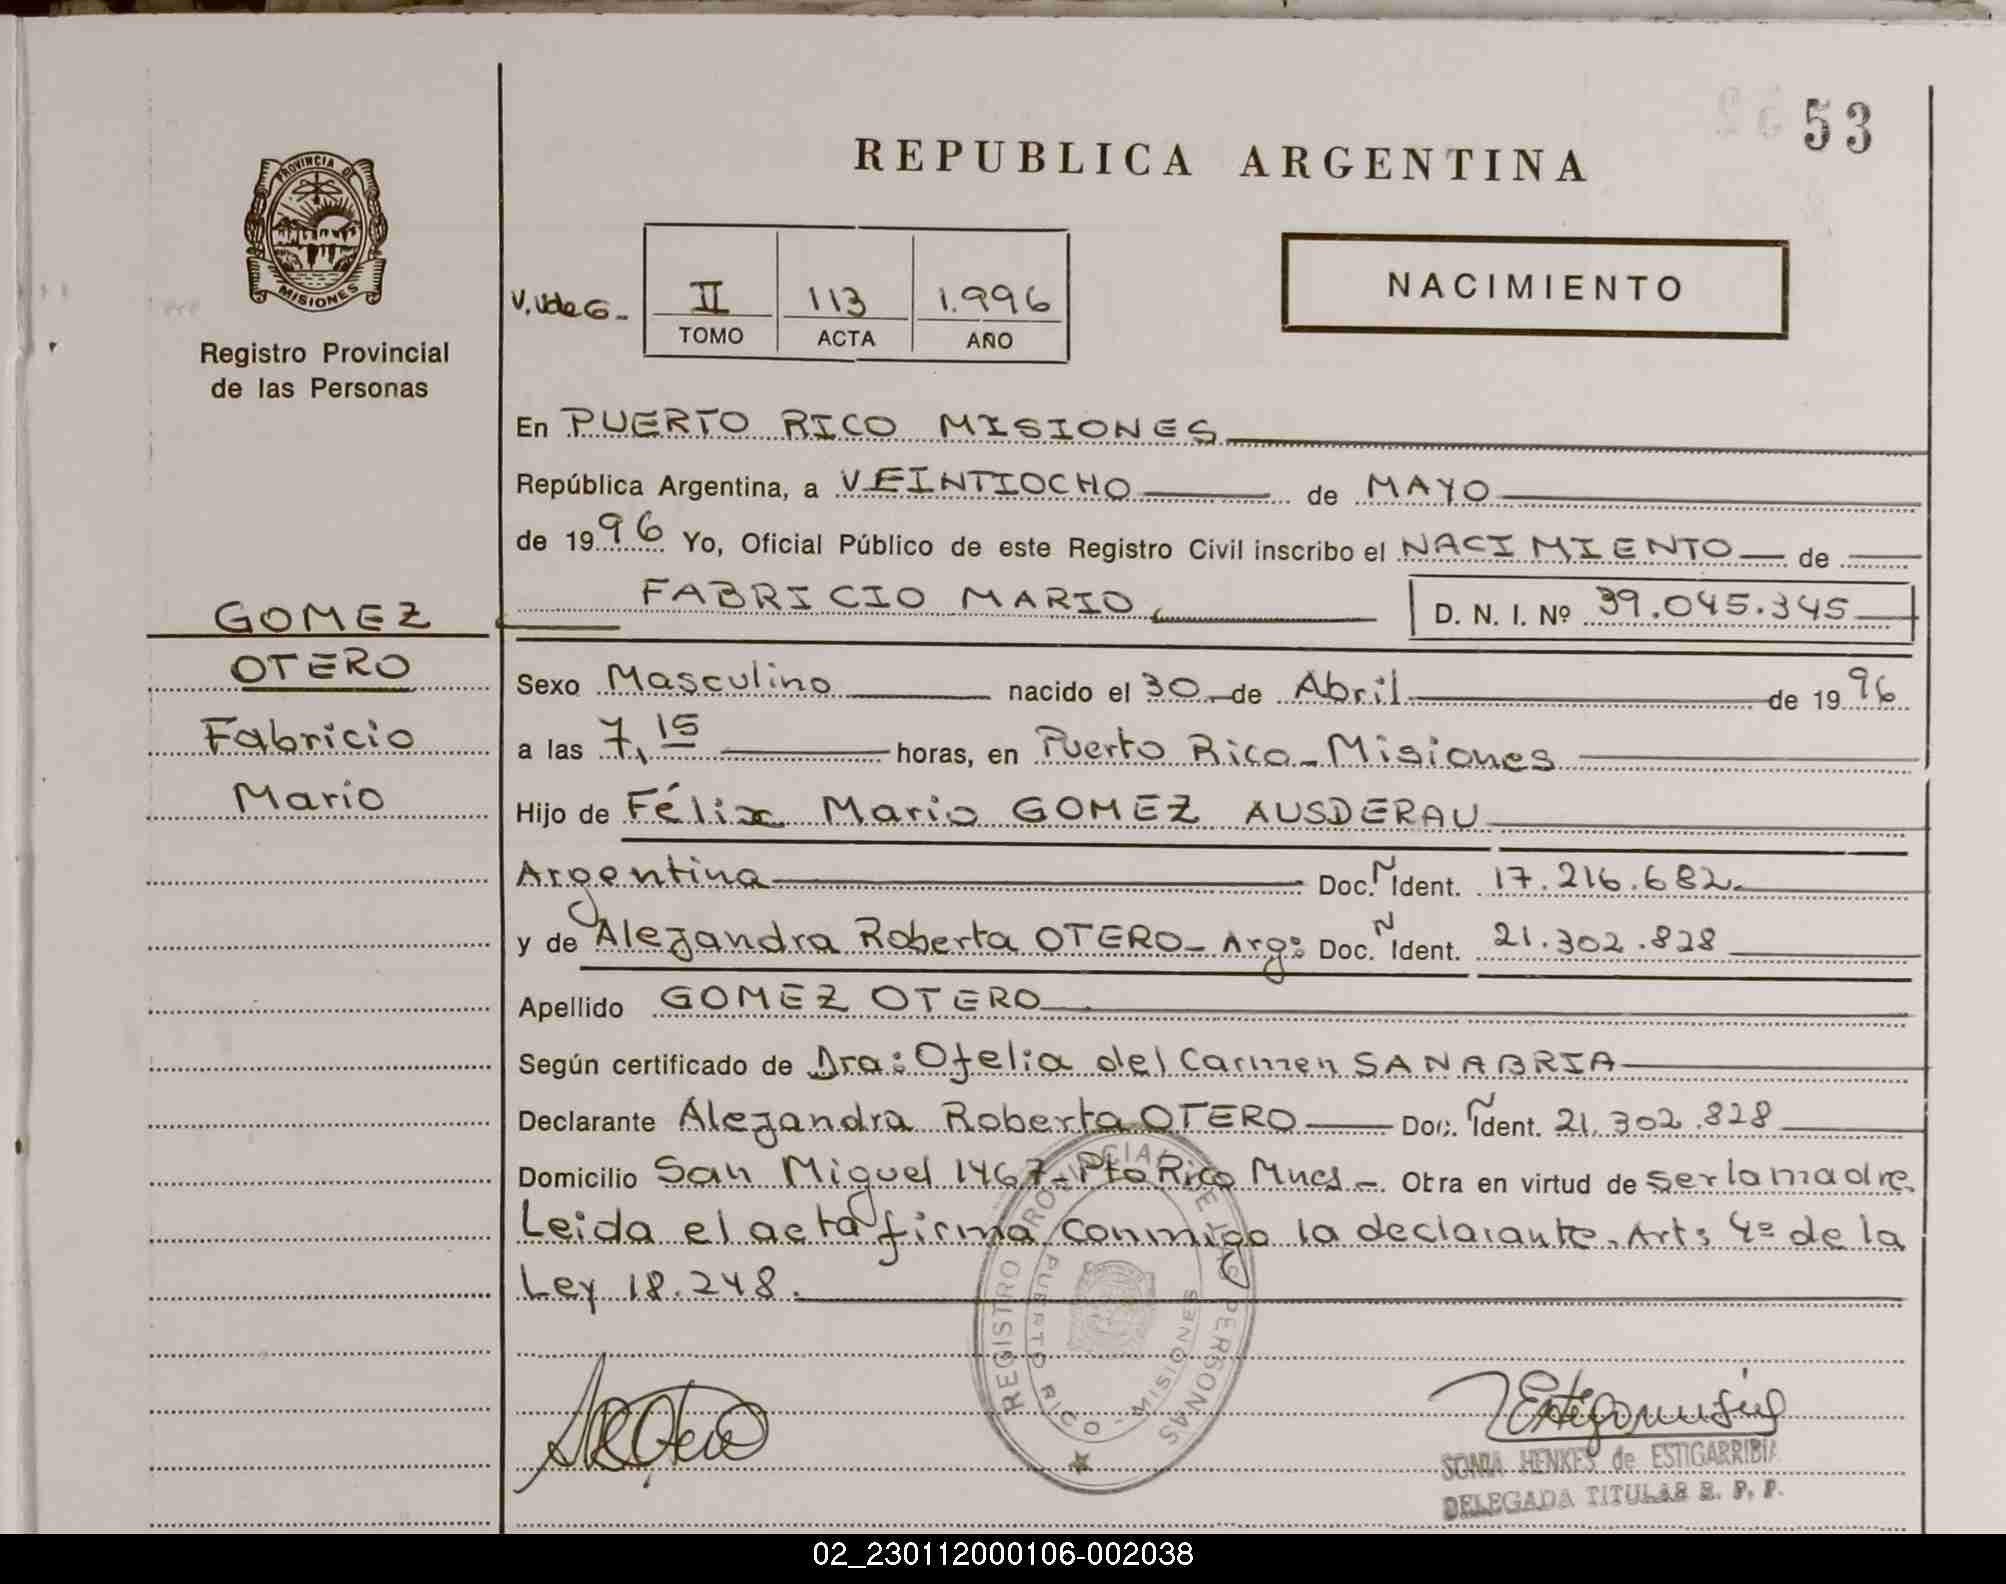 53
REPUBLICA ARGENTINA
PROVINCIA DE
MISIONES
Registro Provincial
de las Personas
V. Ude G_
II 113 1.996
TOMO ACTA AÑO
NACIMIENTO
En PUERTO RICO MISIONES
República Argentina, a VEINTIOCHO de MAYO
de 1996 Yo, Oficial Público de este Registro Civil inscribo el NACIMIENTO de
FABRICIO MARIO D. N. I. Nº 39.045.345
GOMEZ
OTERO
Fabricio
Mario
Sexo Masculino nacido el 30 de Abril de 1996
a las 7,15 horas, en Puerto Rico_Misiones
Hijo de Félix Mario GOMEZ AUSDERAU
Argentina Doc. N Ident. 17.216.682
y de Alejandra Roberta OTERO_ Arg: Doc. N Ident. 21.302.828
Apellido GOMEZ OTERO
Según certificado de Dra: Ofelia del Carmen SANABRIA
Declarante Alejandra Roberta OTERO Doc. N Ident. 21.302.828
Domicilio San Miguel 1467_Pto Rico Mnes_ Obra en virtud de ser la madre
Leida el acta firma conmigo la declarante. Art: 4º de la
Ley 18.248.
REGISTRO PROVINCIAL DE LAS PERSONAS
PUERTO RICO - MISIONES
SONIA HENKES de ESTIGARRIBIA
DELEGADA TITULAR R. P. P.
02_230112000106-002038